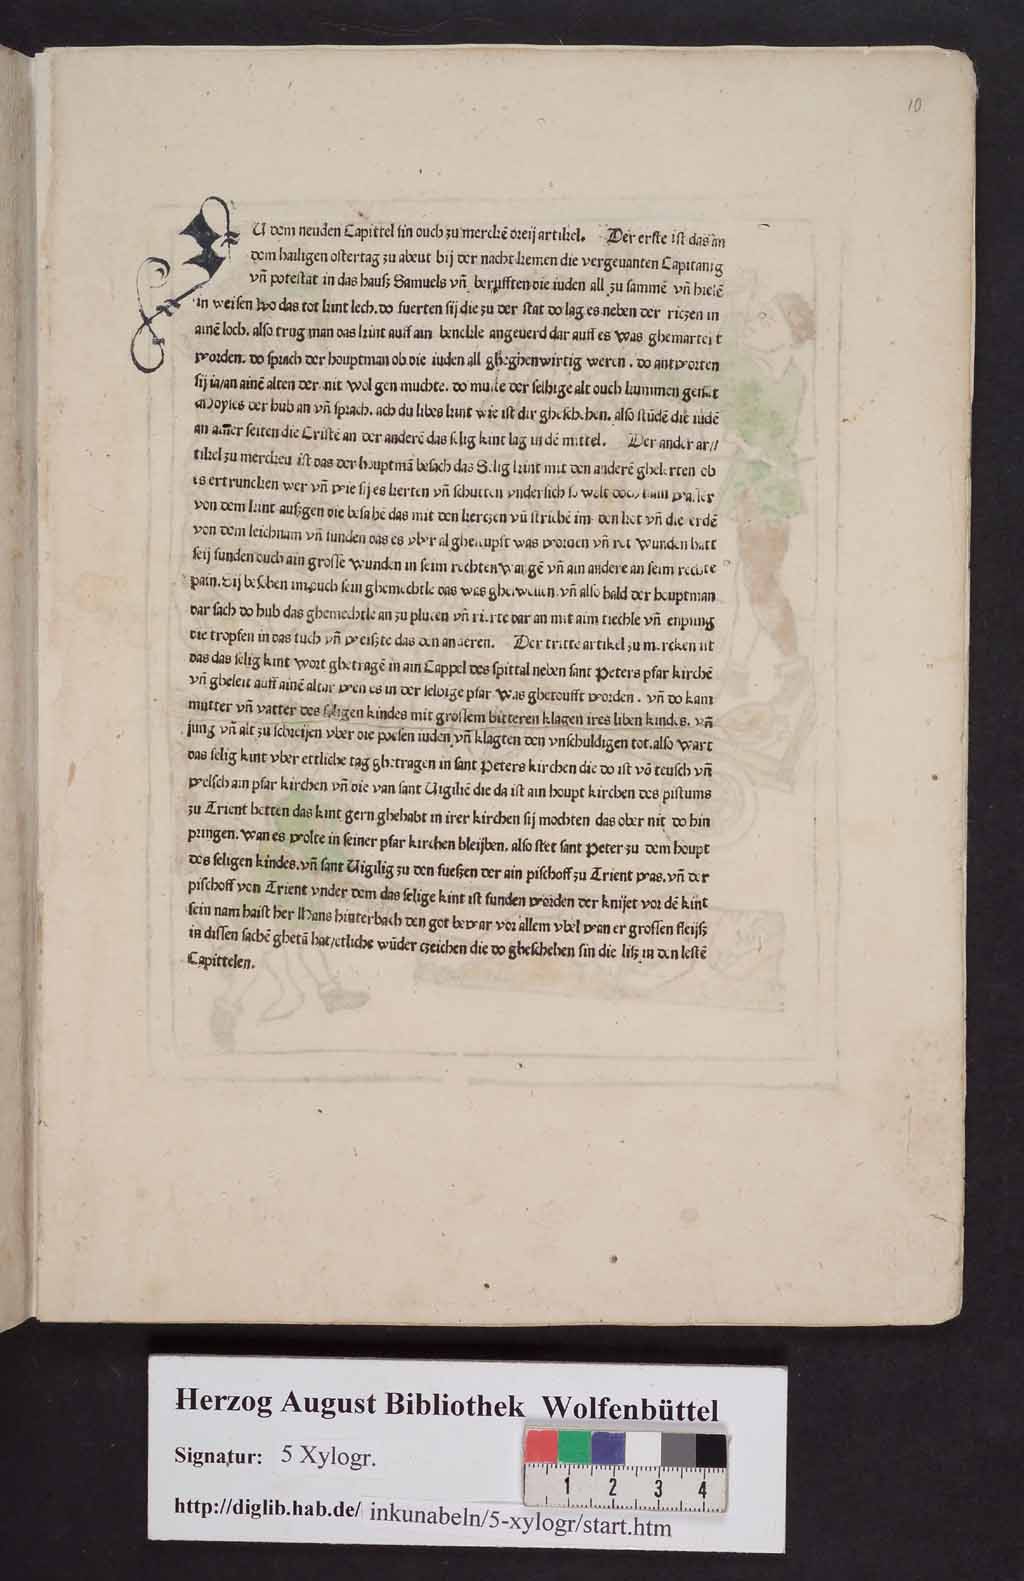 10
ZU dem neuden Capittel sin ouch zu merckē dreij artikel. Der erste ist das an
dem hailigen ostertag zu abent bij der nacht kemen die vergenanten Capitanig
vñ potestat in das hausz Samuels vñ berufften die iuden all zu sammē vñ hiesē
in weisen wo das tot kint lech. do fuerten sij die zu der stat do lag es neben der riczen in
ainē loch. also trug man das kint auff ain benckle angeuerd dar auff es was ghemartert
worden. do sprach der houptman ob die iuden all gheghenwirtig weren. do antworten
sij ia/an ainē alten der nit wol gen muchte. do muste der selbige alt ouch kummen
Moyses der hub an vñ sprach. ach du libes kint wie ist dir gheschehen. also stūdē die iudē
an ainer seiten die Cristē an der anderē das selig kint lag in dē mittel. Der ander ar//
tikel zu mercken ist das der houptmā besach das Selig kint mit den anderē ghelerten ob
es ertruncken wer vñ wie sij es kerten vñ schutten vndersich so wolt doch kain wasser
von dem kint auszgen die besahē das mit den kerczen vñ strichē im den kot vñ die erdē
von dem leichnam vñ funden das es vber al was worden vñ wunden hatt
seij funden ouch ain grossē wunden in seim rechten wangē vñ ain andere an seim rechte
pain. Sij besahen im ouch sein ghemechtle das was vñ also bald der houptman
dar sach do hub das ghemechtle an zu pluten vñ rurte dar an mit aim tiechle vñ enpfing
die tropfen in das tuch vñ weiszte das den anderen. Der tritte artikel zu mercken ist
das das selig kint wort ghetragē in ain Cappel des spittal neben sant Peters pfar kirchē
vñ gheleit auff ainē altar wen es in der selbige pfar was ghetoufft worden. vñ do kam
mutter vñ vatter des seligen kindes mit grossem bitteren klagen ires liben kindes. vñ
jung vñ alt zu schreijen vber die poesen iuden vñ klagten den vnschuldigen tot. also wart
das selig kint vber ettliche tag ghetragen in sant Peters kirchen die do ist vō teusch vñ
welsch ain pfar kirchen vñ die van sant Uigiliē die da ist ain houpt kirchen des pistums
zu Trient hetten das kint gern ghehabt in irer kirchen sij mochten das ober nit do hin
pringen. wan es wolte in seiner pfar kirchen bleijben. also stet sant Peter zu dem houpt
des seligen kindes. vñ sant Uigilig zu den fueszen der ain pischoff zu Trient was. vñ der
pischoff von Trient vnder dem das selige kint ist funden worden der knijet vor dē kint
sein nam haist her Hans hinterbach den got bewar vor allem vbel wan er grossen fleijsz
in dissen sachē ghetā hat/etliche wūder czeichen die do gheschehen sin die lisz in den lestē
Capittelen.
Herzog August Bibliothek Wolfenbüttel
Signatur: 5 Xylogr.
1 2 3 4
http://diglib.hab.de/ inkunabeln/5-xylogr/start.htm